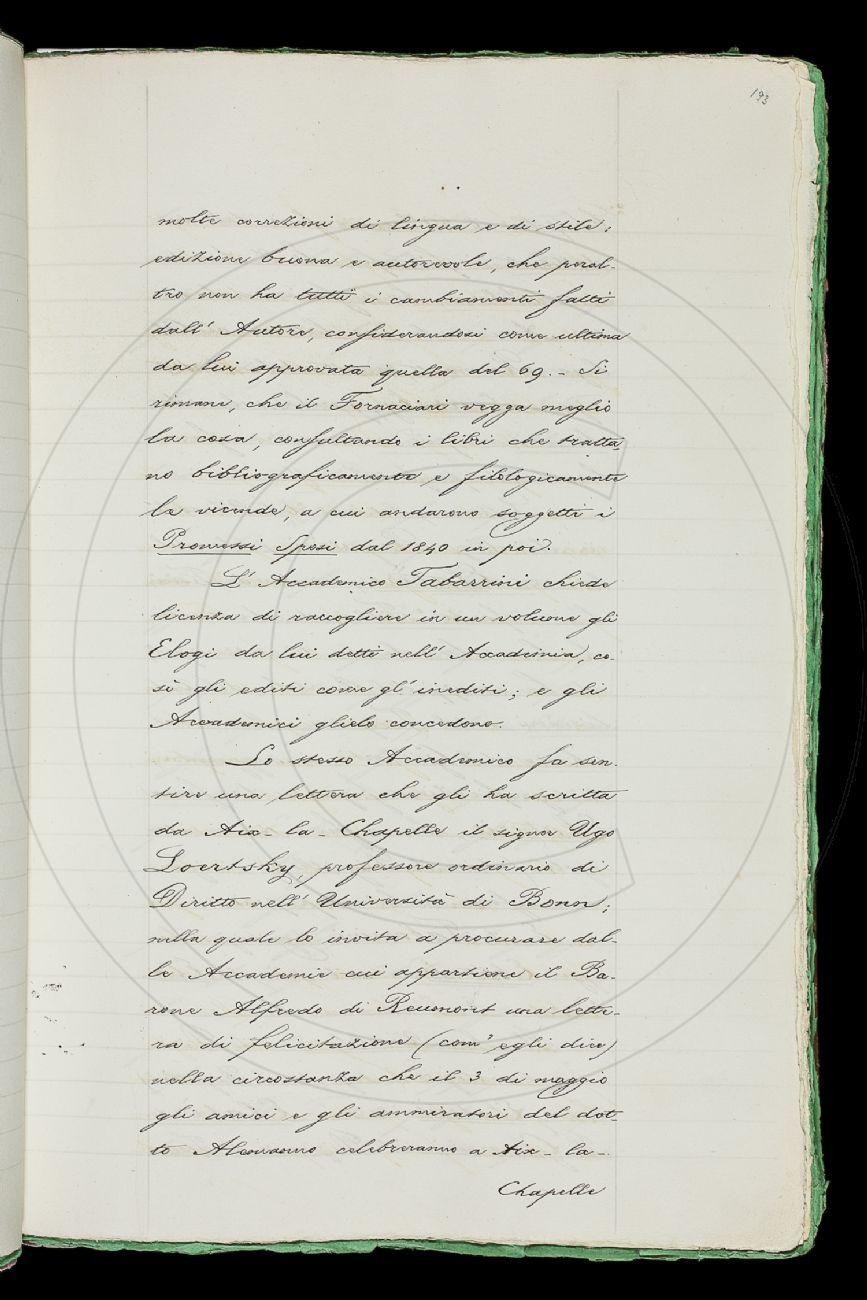 193
molte correzioni di lingua e di stile;
edizione buona e autorevole, che peral-
tro non ha tutti i cambiamenti fatti
dall' Autore, considerandosi come ultima
da lui approvata quella del 69. - Si
rimane, che il Fornaciari vegga meglio
la cosa, consultando i libri che tratta-
no bibliograficamente e filologicamente
le vicende, a cui andarono soggetti i
Promessi Sposi dal 1840 in poi.
L' Accademico Tabarrini chiede
licenza di raccogliere in un volume gli
Elogi da lui detti nell' Accademia, co-
sì gli editi come gl' inediti; e gli
Accademici glielo concedono.
Lo stesso Accademico fa sen-
tire una lettera che gli ha scritta
da Aix-la-Chapelle il signor Ugo
Loertsky, professore ordinario di
Diritto nell' Università di Bonn;
nella quale lo invita a procurare dal-
le Accademie cui appartiene il Ba-
rone Alfredo di Reumont una lette-
ra di felicitazione (com' egli dice)
nella circostanza che il 3 di maggio
gli amici e gli ammiratori del dot-
to Alemanno celebreranno a Aix-la-
Chapelle